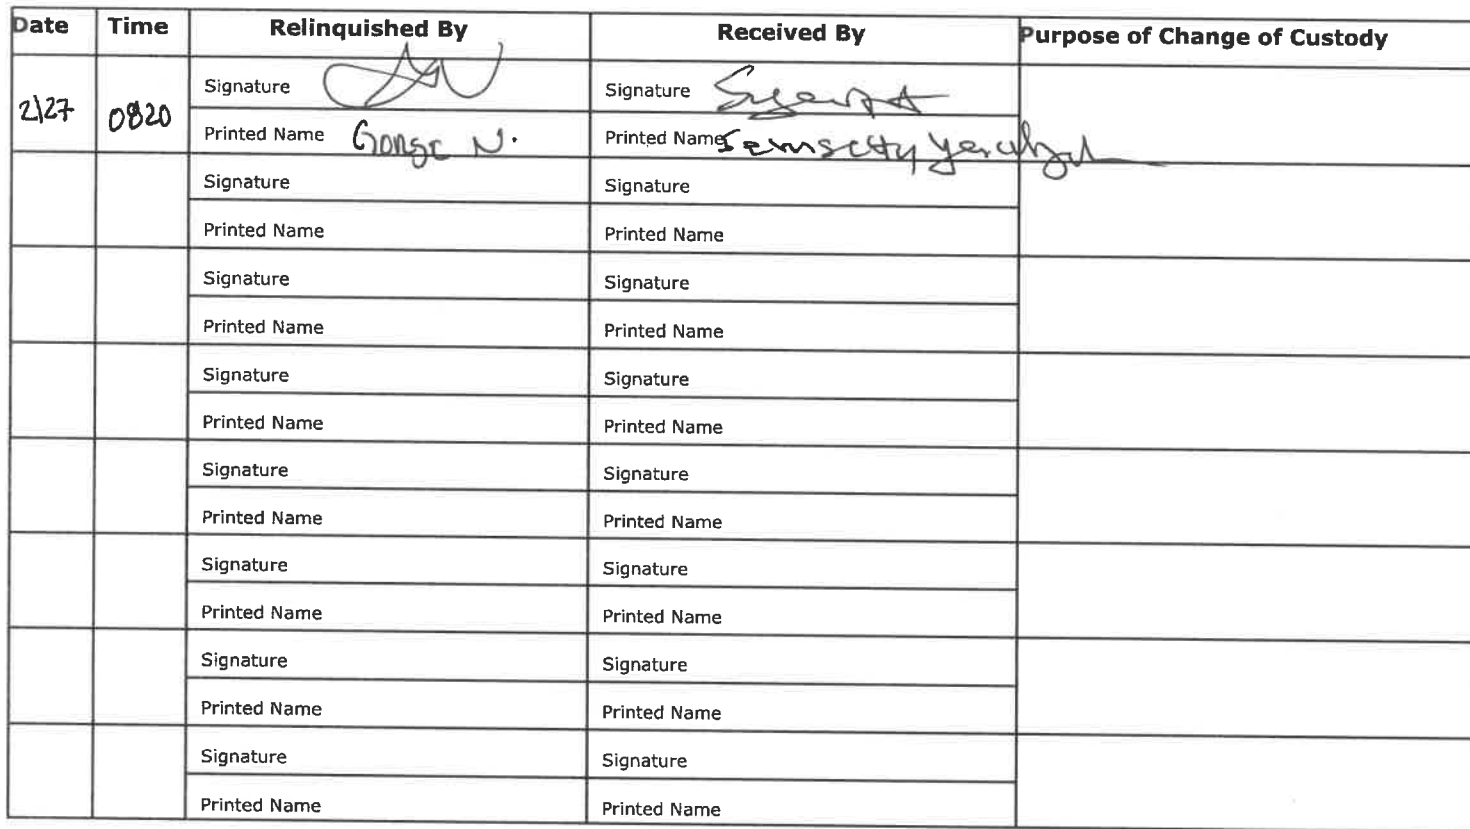 Date Time Relinquished By Received By Purpose of Change of Custody
2/27 0820 Signature Signature
Printed Name N. Printed Name
Signature Signature
Printed Name Printed Name
Signature Signature
Printed Name Printed Name
Signature Signature
Printed Name Printed Name
Signature Signature
Printed Name Printed Name
Signature Signature
Printed Name Printed Name
Signature Signature
Printed Name Printed Name
Signature Signature
Printed Name Printed Name